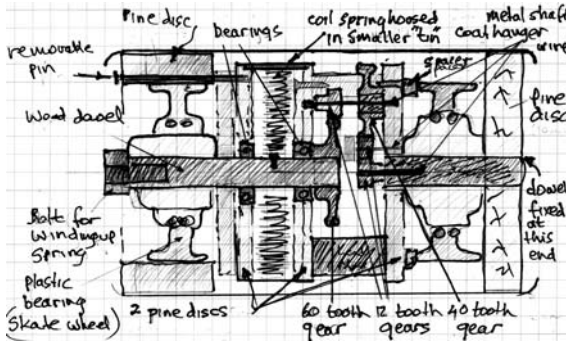 Pine disc
bearings
coil spring housed
in smaller "tin"
metal shaft
coat hanger
wire
removable
pin
spacer
Wood dowel
pine
disc
dowel
fixed
at
this
end
Bolt for
winding up
spring
plastic
bearing
(Skate wheel)
2 pine discs
60 tooth
gear
12 tooth
gears
40 tooth
gear